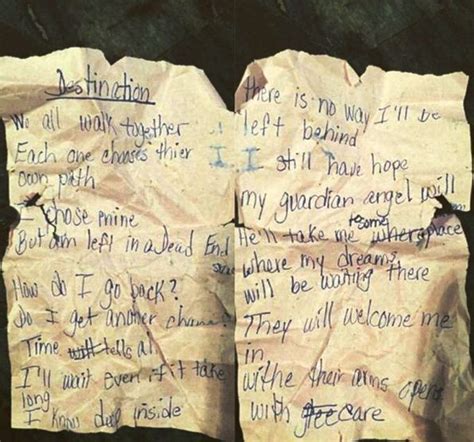 Destination
We all walk together
Each one chooses thier
own path
I chose mine
But am left in a Dead End
How do I go back?
Do I get another chance?
Time will tells all
I'll wait even if it take
long
I know deep inside
there is no way I'll be
left behind
I I still have hope
my guardian angel will
He'll take me where someplace
where my dreams
will be waiting there
They will welcome me
in
withe their arms open
with care